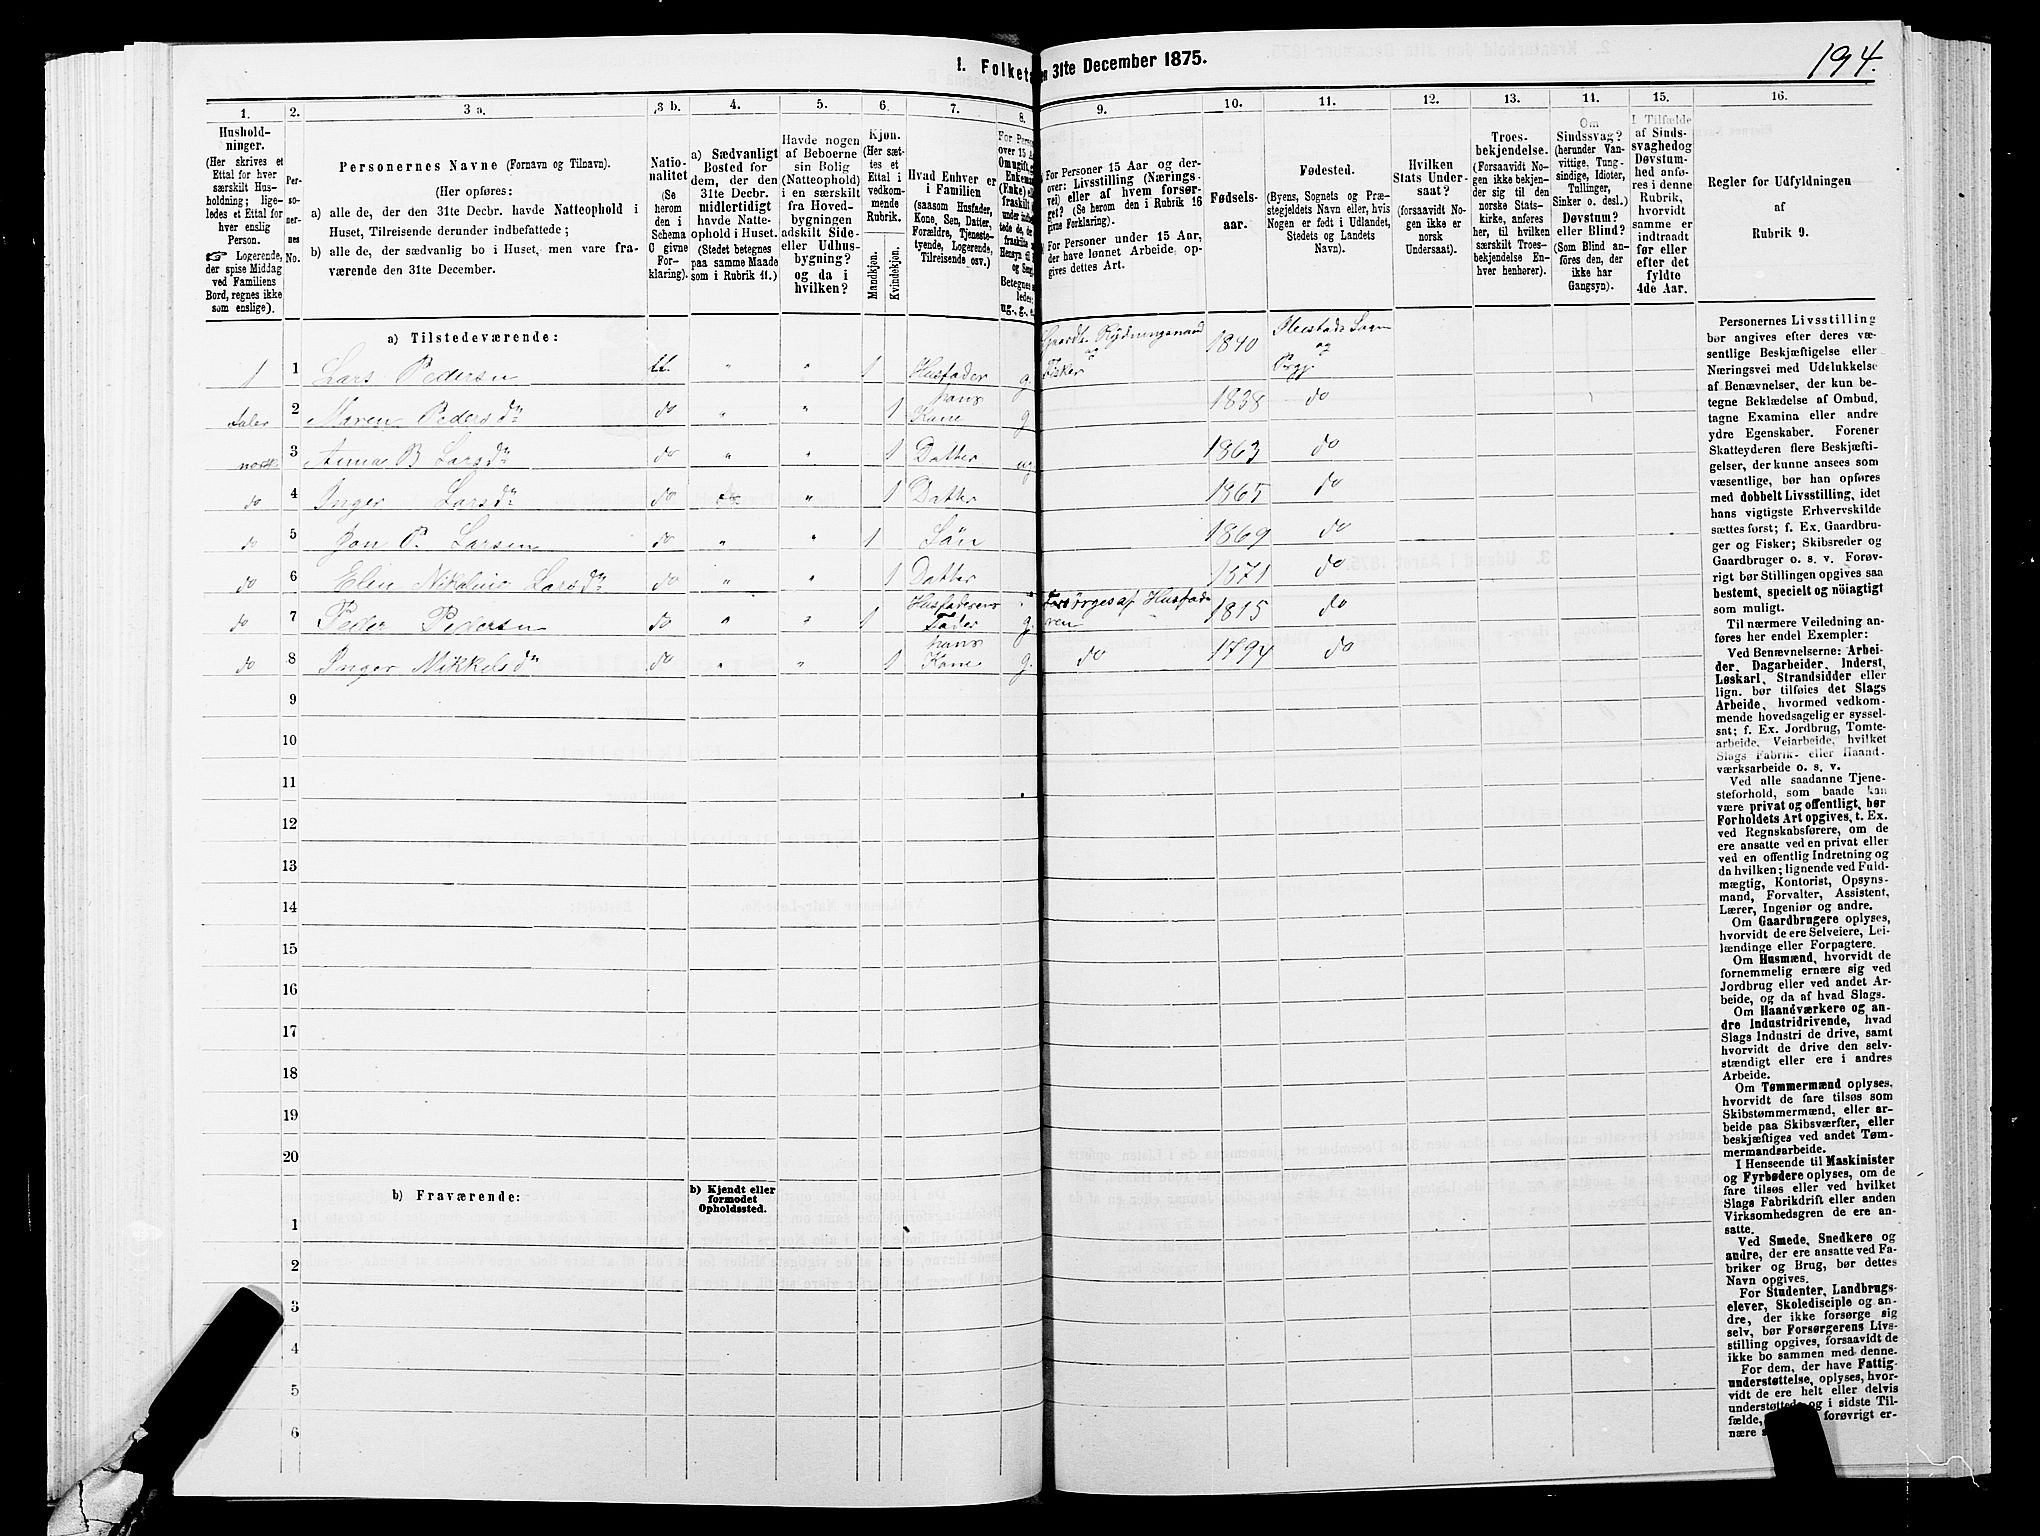 194.
1. Folketæ
en 31te December 1875.
1.
2.
3 a.
3 b.
4.
5.
6.
7.
8.
9.
10.
11.
12.
13.
14.
15.
16.
Hushold-
ninger.
(Her skrives et
Ettal for hver
særskilt Hus-
holdning; lige-
ledes et Ettal for
hver enslig
Person.
☞ Logerende,
der spise Middag
ved Familiens
Bord, regnes ikke
som enslige).
Per-
so-
ner-
nes
No.
Personernes Navne (Fornavn og Tilnavn).
(Her opføres:
a) alle de, der den 31te Decbr. havde Natteophold i
Huset, Tilreisende derunder indbefattede;
b) alle de, der sædvanlig bo i Huset, men vare fra-
værende den 31te December.
Natio-
nalitet
(Se
herom
den i
Schema
C givne
For-
klaring).
a) Sædvanligt
Bosted for
dem, der den
31te Decbr.
midlertidigt
havde Natte-
ophold i Huset.
(Stedet betegnes
paa samme Maade
som i Rubrik 11.)
Havde nogen
af Beboerne
sin Bolig
(Natteophold)
i en særskilt
fra Hoved-
bygningen
adskilt Side-
eller Udhus-
bygning?
og da i
hvilken?
Kjøn.
(Her sæt-
tes et
Ettal i
vedkom-
mende
Rubrik.
Mandkjøn.
Kvindekjøn.
Hvad Enhver er
i Familien
(saasom Husfader,
Kone, Søn, Datter,
Forældre, Tjeneste-
tyende, Logerende,
Tilreisende osv.)
For Perso
over 15 Aa
Omugift, g
Enkema
(Enke) elle
fraskilt
ug-, g-, e
For Personer 15 Aar og der-
over: Livsstilling (Nærings-
vei) eller af hvem forsør-
get? (Se herom den i Rubrik 16
givne Forklaring.)
For Personer under 15 Aar,
der have lønnet Arbeide, op-
gives dettes Art.
Fødsels-
aar.
Fødested.
(Byens, Sognets og Præ-
stegjeldets Navn eller, hvis
Nogen er født i Udlandet,
Stedets og Landets
Navn).
Hvilken
Stats Under-
saat?
(forsaavidt No-
gen ikke er
norsk
Undersaat).
Troes-
bekjendelse.
(Forsaavidt No-
gen ikke bekjen-
der sig til den
norske Stats-
kirke, anføres
her, til hvilken
særskilt Troes-
bekjendelse En-
hver henhører).
Om
Sindssvag?
(herunder Van-
vittige, Tung-
sindige, Idioter,
Tullinger,
Sinker o. desl.)
Døvstum?
eller Blind?
(Som Blind an-
føres den, der
ikke har
Gangsyn).
I Tilfælde
af Sinds-
svaghedog
Døvstum-
hed anfø-
res i denne
Rubrik,
hvorvidt
samme er
indtraadt
før eller
efter det
fyldte
4de Aar.
Regler for Udfyldningen
af
Rubrik 9.
a) Tilstedeværende:
1 1 Lars Pedersen " " 1 Husfader g. Gaardbr. Rydningsmand og Fisker 1840 Sogn og
2 Maren Pedersdn do " " 1 hans Kone g 1838 do
norsk 3 Anna B Larsdn do " " 1 Datter ug 1863 do
do 4 Inger Larsdn do " 1 Datter 1865 do
do 5 Jon P. Larsen do " " 1 Søn 1869 do
do 6 Elen Nikoline Larsdn do " " 1 Datter 1871 do
do 7 Peder Pedersen do " " 1 Husfaderens Fader g. Forsørges af Husfaderen 1815 do
do 8 Inger Mikkelsdn do " " 1 hans Kone g. do 1794 do
9
10
11
12
13
14
15
16
17
18
19
20
b) Fraværende:
b) Kjendt eller
formodet
Opholdssted.
1
2
3
4
5
6
Personernes Livsstilling
bør angives efter deres væ-
sentlige Beskjæftigelse eller
Næringsvei med Udelukkelse
af Benævnelser, der kun be-
tegne Beklædelse af Ombud,
tagne Examina eller andre
ydre Egenskaber. Forener
Skatteyderen flere Beskjæfti-
gelser, der kunne ansees som
væsentlige, bør han opføres
med dobbelt Livsstilling, idet
hans vigtigste Erhvervskilde
sættes først; f. Ex. Gaardbru-
ger og Fisker; Skibsreder og
Gaardbruger o. s. v. Forøv-
rigt bør Stillingen opgives saa
bestemt, specielt og nöiagtigt
som muligt.
Til nærmere Veiledning an-
føres her endel Exempler:
Ved Benævnelserne: Arbei-
der, Dagarbeider, Inderst,
Løskarl, Strandsidder eller
lign. bør tilføies det Slags
Arbeide, hvormed vedkom-
mende hovedsagelig er syssel-
sat; f. Ex. Jordbrug, Tomte-
arbeide, Veiarbeide, hvilket
Slags Fabrik- eller Haand-
værksarbeide o. s. v.
Ved alle saadanne Tjene-
steforhold, som baade kan
være privat og offentligt, bør
Forholdets Art opgives, t. Ex.
ved Regnskabsførere, om de
ere ansatte ved en privat eller
ved en offentlig Indretning og
da hvilken; lignende ved Fuld-
mægtig, Kontorist, Opsyns-
mand, Forvalter, Assistent,
Lærer, Ingeniør og andre.
Om Gaardbrugere oplyses,
hvorvidt de ere Selveiere, Lei-
lændinge eller Forpagtere.
Om Husmænd, hvorvidt de
fornemmelig ernære sig ved
Jordbrug eller ved andet Ar-
beide, og da af hvad Slags.
Om Haandværkere og an-
dre Industridrivende, hvad
Slags Industri de drive, samt
hvorvidt de drive den selv-
stændigt eller ere i andres
Arbeide.
Om Tømmermænd oplyses,
hvorvidt de fare tilsøs som
Skibstømmermænd, eller ar-
beide paa Skibsværfter, eller
beskjæftiges ved andet Tøm-
mermandsarbeide.
I Henseende til Maskinister
og Fyrbødere oplyses, om de
fare tilsøs eller ved hvilket
Slags Fabrikdrift eller anden
Virksomhedsgren de ere an-
satte.
Ved Smede, Snedkere og
andre, der ere ansatte ved Fa-
briker og Brug, bør dettes
Navn opgives.
For Studenter, Landbrugs-
elever, Skoledisciple og an-
dre, der ikke forsørge sig
selv, bør Forsørgerens Livs-
stilling opgives, forsaavidt de
ikke bo sammen med denne.
For dem, der have Fattig-
understøttelse, oplyses, hvor-
vidt de ere helt eller delvis
understøttede og i sidste Til-
fælde, forøvrigt er-
nære